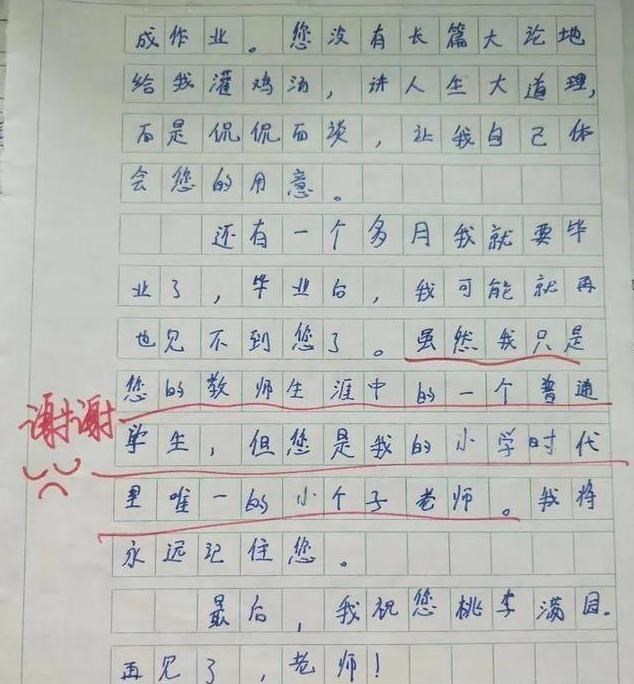 成作业。您没有长篇大论地
给我灌鸡汤，讲人生大道理，
而是侃侃而谈，让我自己体
会您的用意。
还有一个多月我就要毕
业了，毕业后，我可能就再
也见不到您了。虽然我只是
您的教师生涯中的一个普通
谢谢
学生，但您是我的小学时代
里唯一的小个子老师。我将
永远记住您。
最后，我祝您桃李满园.
再见了，老师！